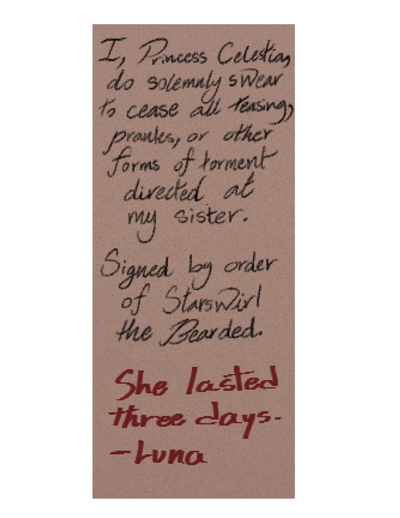 I, Princess Celestia,
do solemnly swear
to cease all teasing,
pranks, or other
forms of torment
directed at
my sister.
Signed by order
of Starswirl
the Bearded.
She lasted
three days.
-Luna